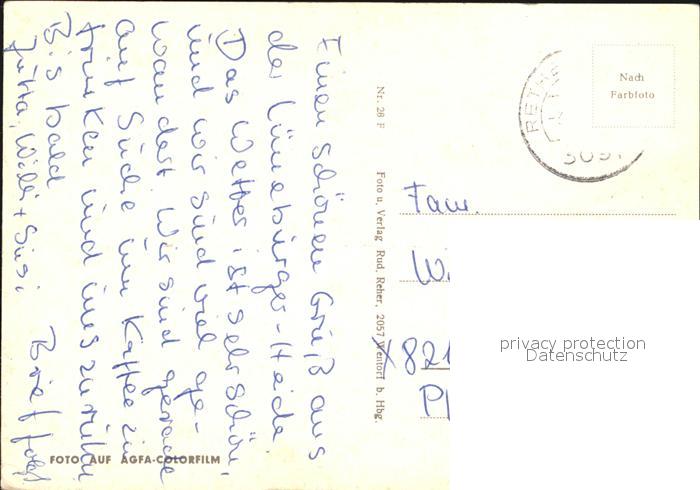 Einen schönen Gruß aus
der Lüneburger-Heide
Das Wetter ist sehr schön,
und wir sind viel ge-
wandert. Wir sind gerade
auf Suche um Kaffee zu
trinken und uns
Bis bald
Jutta, Willi + Susi
Brief folgt
Nr. 28 F
Foto u. Verlag Rud. Reher, 2057 Wentorf b. Hbg.
FOTO AUF AGFA-COLORFILM
Nach
Farbfoto
RETHE
Fam.
W.
821
Pl
privacy protection
Datenschutz